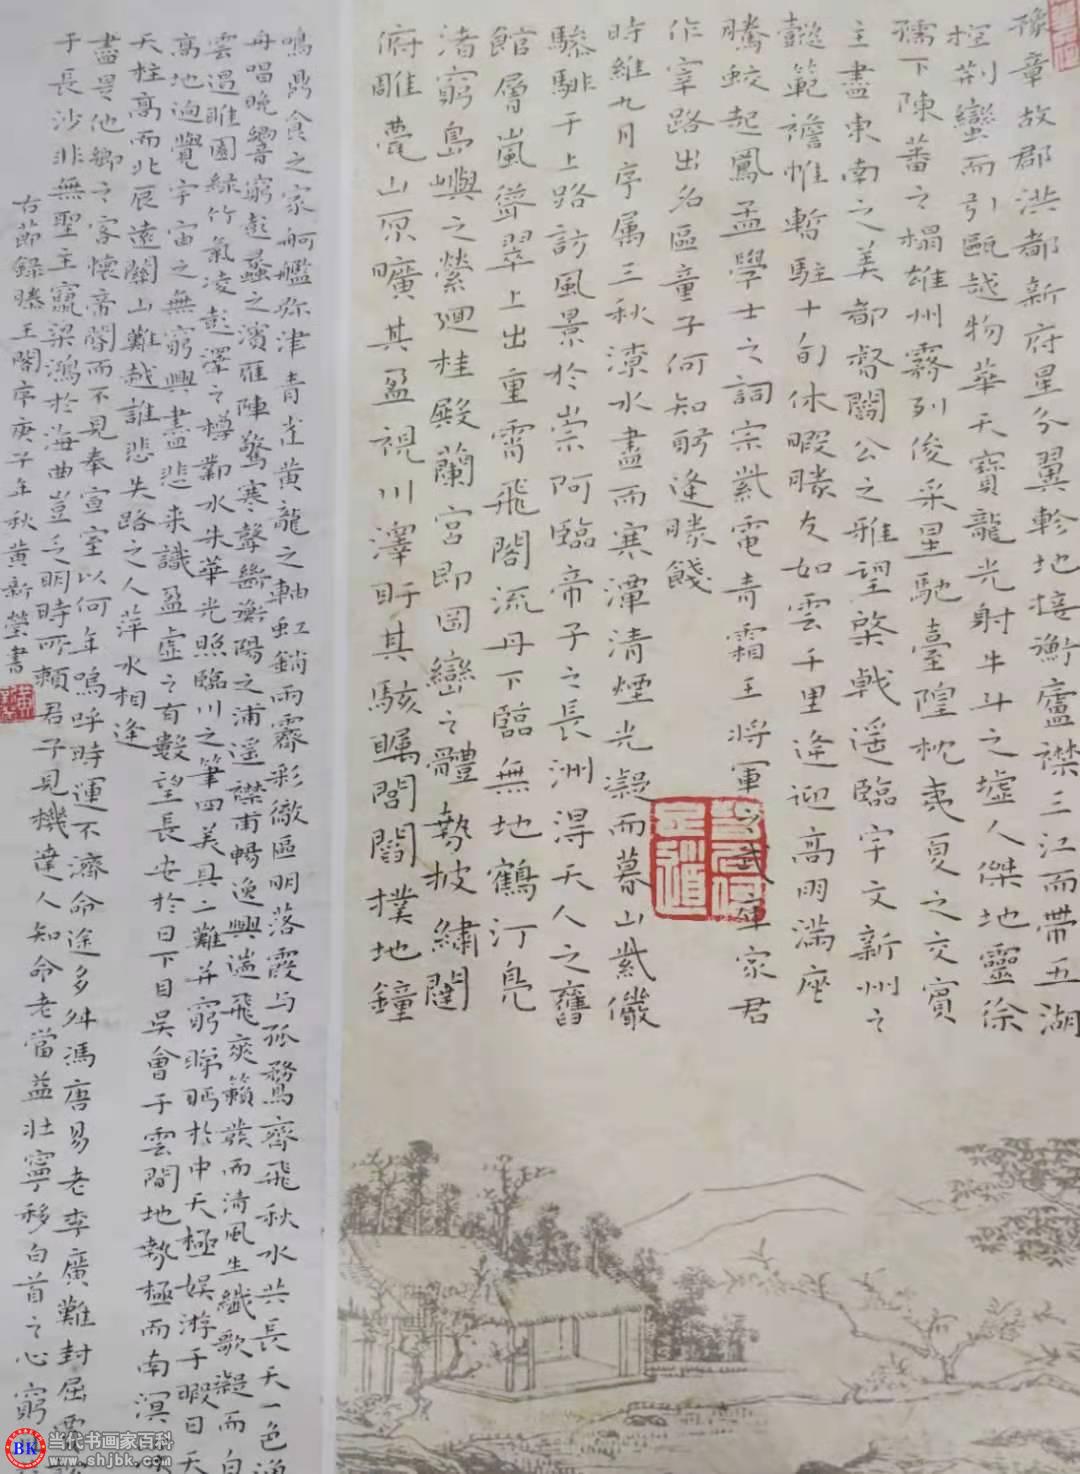 豫章故郡洪都新府星分翼軫地接衡廬襟三江而帶五湖
控荆蠻而引甌越物華天寶龍光射牛斗之墟人傑地靈徐
孺下陳蕃之榻雄州霧列俊采星馳臺隍枕夷夏之交賓
主盡東南之美都督閻公之雅望棨戟遥臨宇文新州之
懿範襜帷暫駐十旬休暇勝友如雲千里逢迎高朋滿座
騰蛟起鳳孟學士之詞宗紫電青霜王將軍之武庫家君
作宰路出名區童子何知躬逢勝餞
時維九月序属三秋潦水盡而寒潭清煙光凝而暮山紫儼
驂騑于上路訪風景於崇阿臨帝子之長洲得天人之舊
館層嵐聳翠上出重霄飛閣流丹下臨無地鶴汀凫
渚窮島嶼之縈廻桂殿蘭宮即岡巒之體勢披繡闥
俯雕甍山原曠其盈視川澤盱其駭矚閭閻撲地鐘
鳴鼎食之家舸艦弥津青雀黄龍之軸虹銷雨霽彩徹區明落霞与孤鶩齊飛秋水共長天一色漁
舟唱晚響窮彭蠡之濱雁陣驚寒聲斷衡陽之浦遥襟甫暢逸興遄飛爽籟發而清風生纖歌凝而白
雲遏睢園緑竹氣凌彭澤之樽鄴水朱華光照臨川之筆四美具二難并窮睇眄於中天極娱游于暇日天
高地迥覺宇宙之無窮興盡悲来識盈虚之有數望長安於日下目吴會于雲間地勢極而南溟
天柱高而北辰遠關山難越誰悲失路之人萍水相逢
盡是他鄉之客懷帝閽而不見奉宣室以何年嗚呼時運不濟命途多舛馮唐易老李廣難封屈賈
于長沙非無聖主竄梁鴻於海曲豈乏明時所賴君子見機達人知命老當益壯寧移白首之心窮
右節録滕王閣序庚子年秋黄新瑩書
BK 当代书画家百科
www.shjbk.com